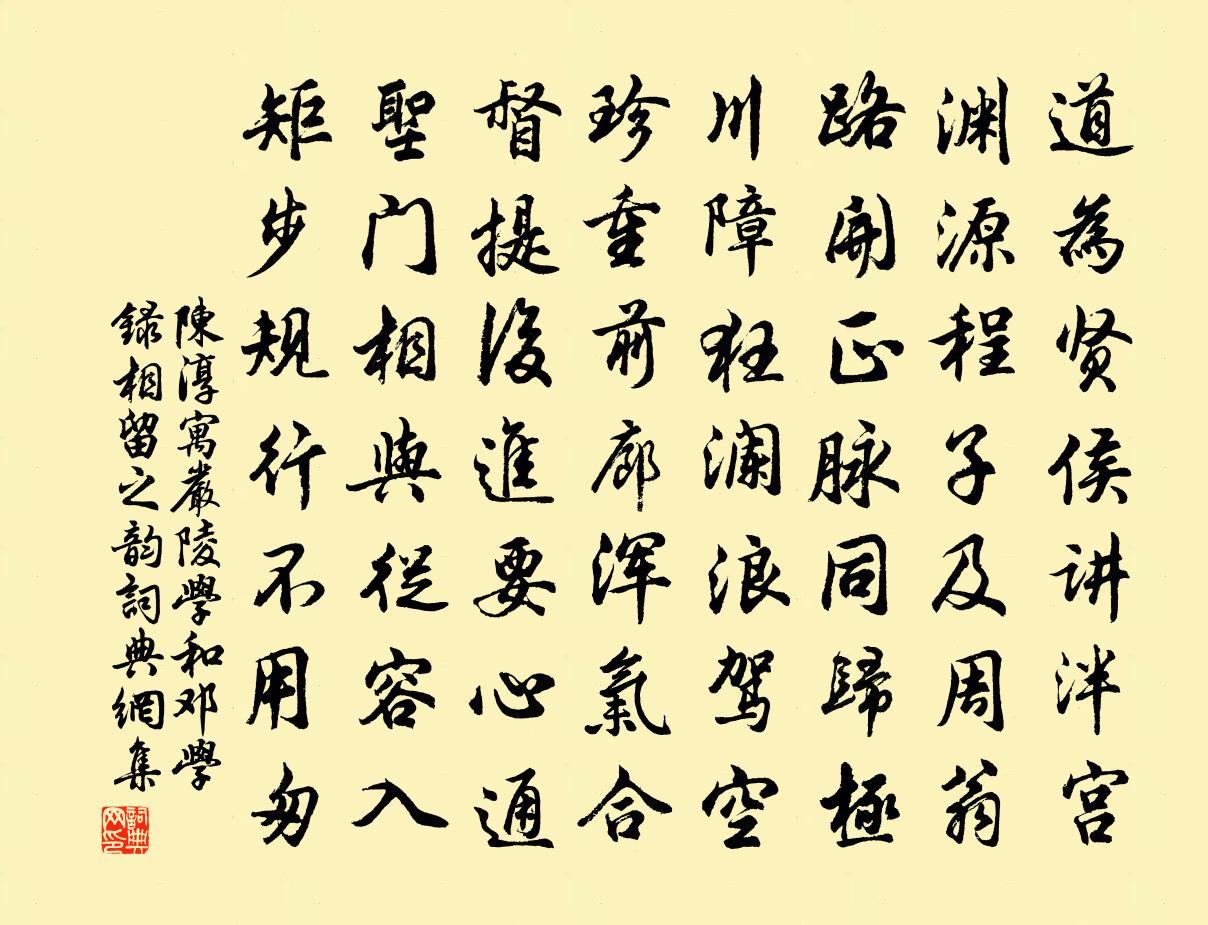 道為贤侯讲泮宫
渊源程子及周翁
路開正脉同歸極
川障狂澜浪駕空
珍重前廊浑氣合
督提後進要心通
聖門相與從容入
矩步規行不用匆
陳淳寓嚴陵學和邓學
録相留之韵詞典網集
詞典网印